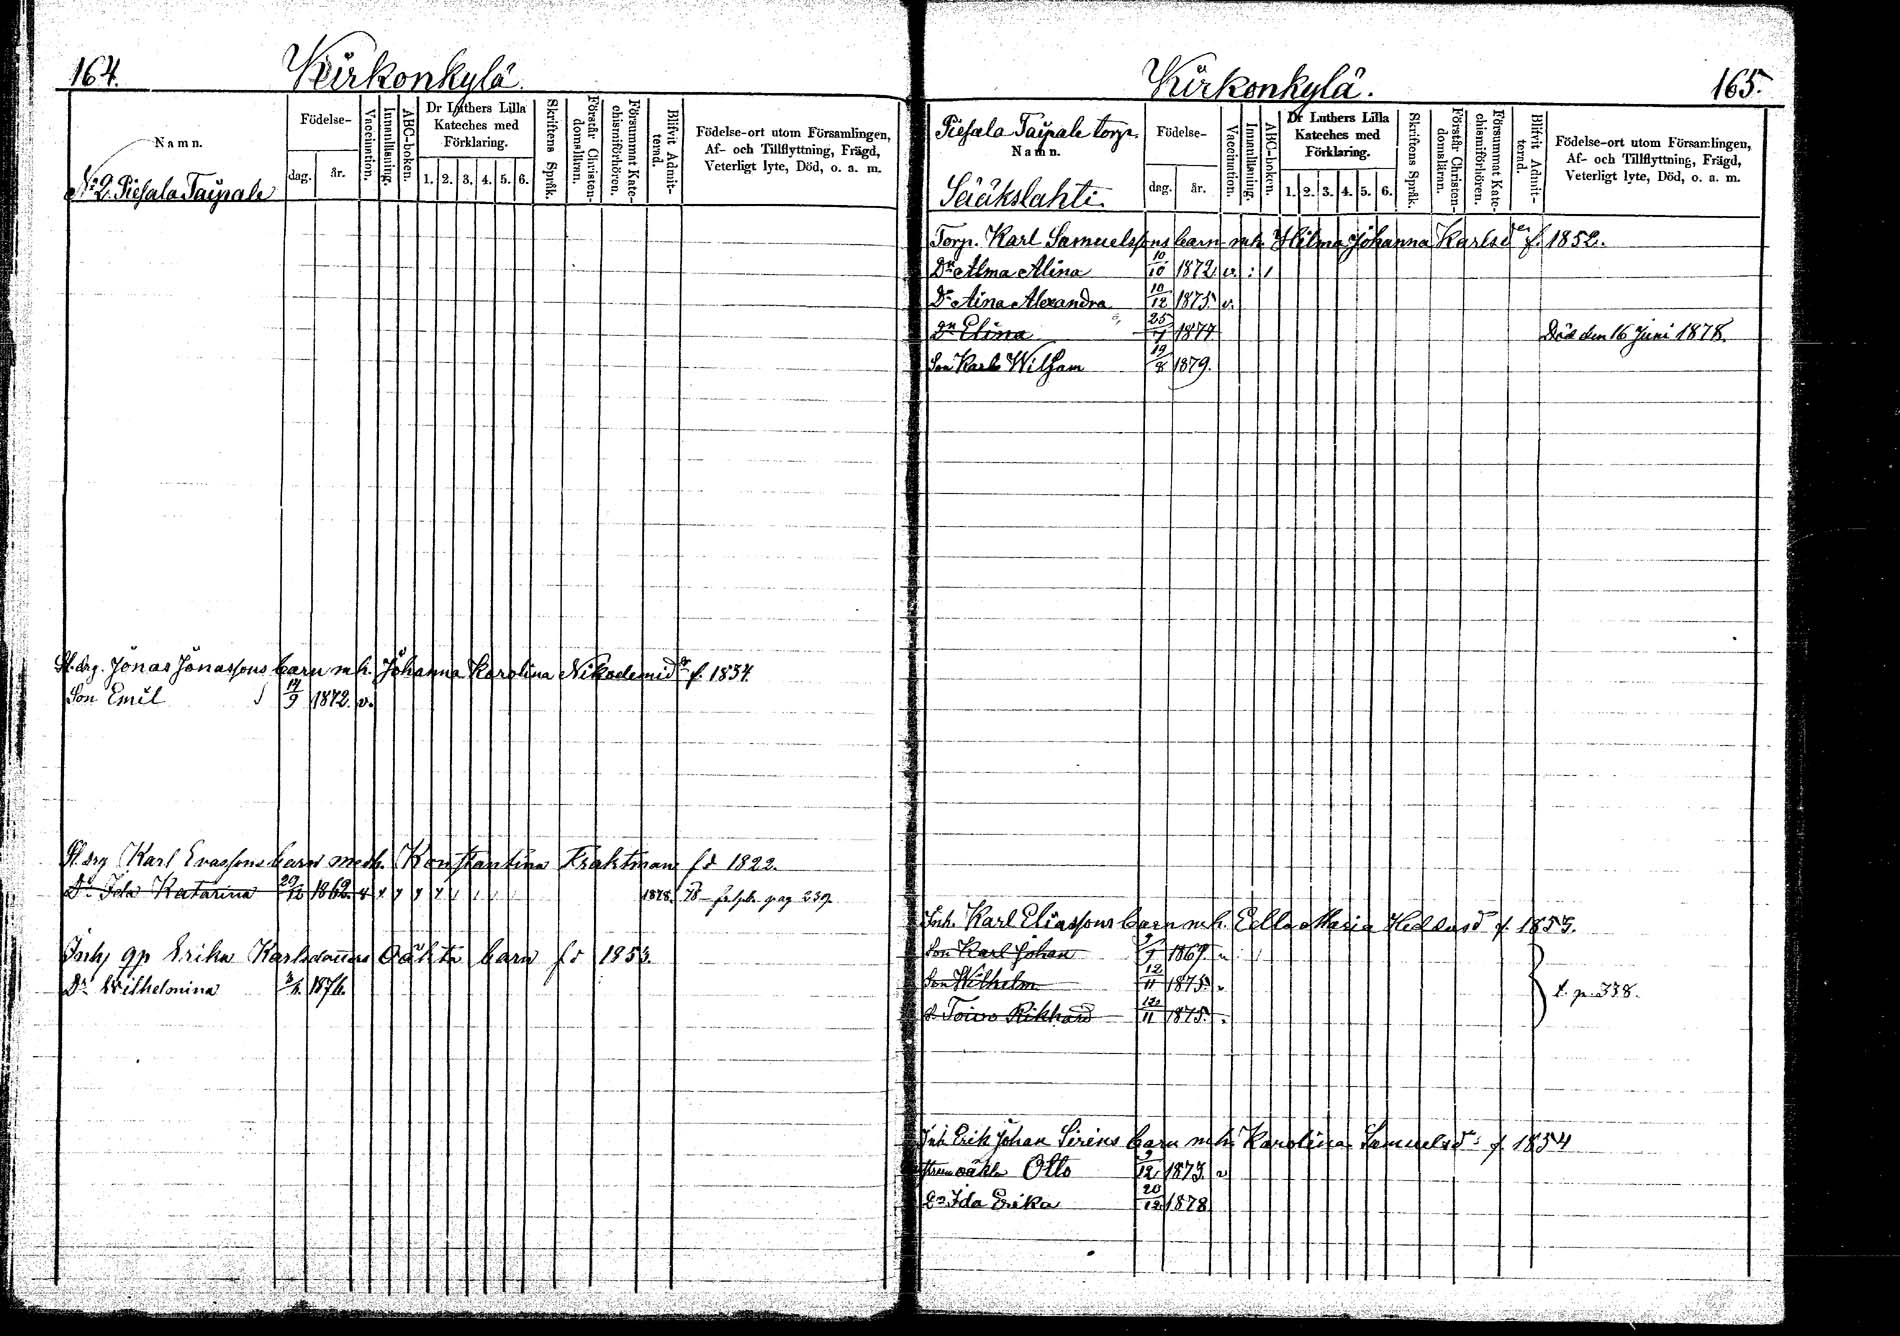 164.
Kirkonkylä.
Namn.
Födelse-
dag.
år.
Vaccination.
Innanläsning.
ABC-boken.
Dr Luthers Lilla Kateches med Förklaring.
1. 2. 3. 4. 5. 6.
Skriftens Språk.
Förstår Christendomsläran.
Försummat Katechismiförhören.
Blifvit Admitterad.
Födelse-ort utom Församlingen,
Af- och Tillflyttning, Frägd,
Veterligt lyte, Död, o. a. m.
No 2. Piesala Taipale
St. drg. Jonas Jonassons barn m.h. Johanna Karolina Nikodemidr f. 1834.
Son Emil 14/9 1872. v.
St. drg Karl Evassons barn med h. Konstantina Traktman fd 1822.
Dr Ida Katarina 29/12 1862. 1878. pag 239
Inh gp Erika Karlsdotters oäkta barn fd 1853.
Dr Wilhelmina 1876.
Kirkonkylä.
165.
Piesala Taipale torp.
Namn.
Sääkslahti.
Födelse-
dag.
år.
Vaccination.
Innanläsning.
ABC-boken.
Dr Luthers Lilla Kateches med Förklaring.
1. 2. 3. 4. 5. 6.
Skriftens Språk.
Förstår Christendomsläran.
Försummat Katechismiförhören.
Blifvit Admitterad.
Födelse-ort utom Församlingen,
Af- och Tillflyttning, Frägd,
Veterligt lyte, Död, o. a. m.
Torp. Karl Samuelssons barn m.h. Hilma Johanna Karlsder f. 1852.
Dr Alma Alina 10/10 1872 v.
Dr Aina Alexandra 10/12 1875 v.
Dr Elina 25/7 1877 Död den 16 Juni 1878.
Son Karl Wiljam 19/8 1879.
Inh. Karl Eliassons barn m.h. Edla Maria Heddasd f. 1853.
Son Karl Johan 1869
Son Wilhelm 12/11 1875.
S. Toivo Rikhard 12/11 1875.
t. p. 338.
Inh Erik Johan Sirens barn m.h. Karolina Samuelsdr f. 1854
oäkta Otto 9/12 1873. v
Dr Ida Erika 20/12 1878